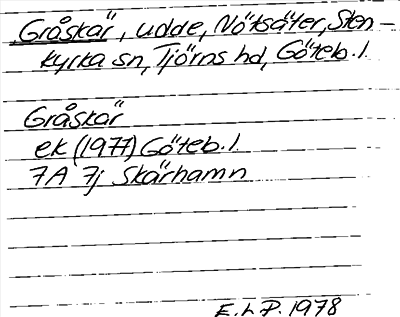 Gråskär, udde, Nötsäter, Sten-
kyrka sn, Tjörns hd, Göteb. l.
Gråskär
ek (1977) Göteb. l.
7A 7j Skärhamn
E. L P. 1978